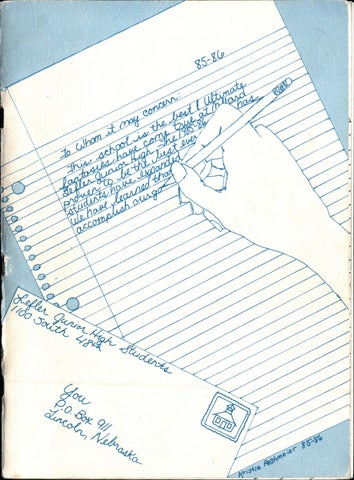 85-86
To whom it may concern:
This school is the best! Ultimate
fantasies have come true at Millard
Lefler Junior High. The '85-86 has
proven to be the best ever
students have expanded
We have learned that
accomplish our go
Lefler Junior High Students
1100 South 48th
You
P.O. Box 911
Lincoln, Nebraska
Kristie 85-86